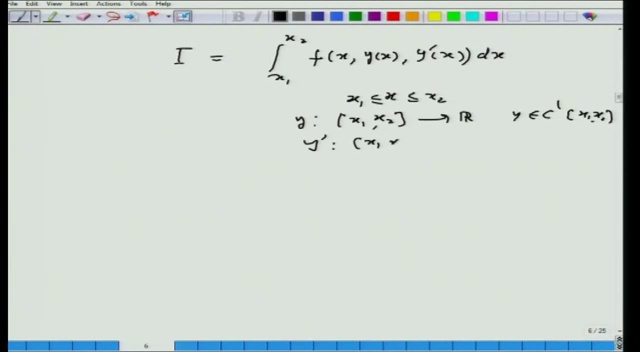 File Edit View Insert Actions Tools Help
I = ∫_{x₁}^{x₂} f(x, y(x), y'(x)) dx
x₁ ≤ x ≤ x₂
y : [x₁, x₂] → ℝ y ∈ C¹ [x₁, x₂]
y' : [x₁ x
6 / 25
6